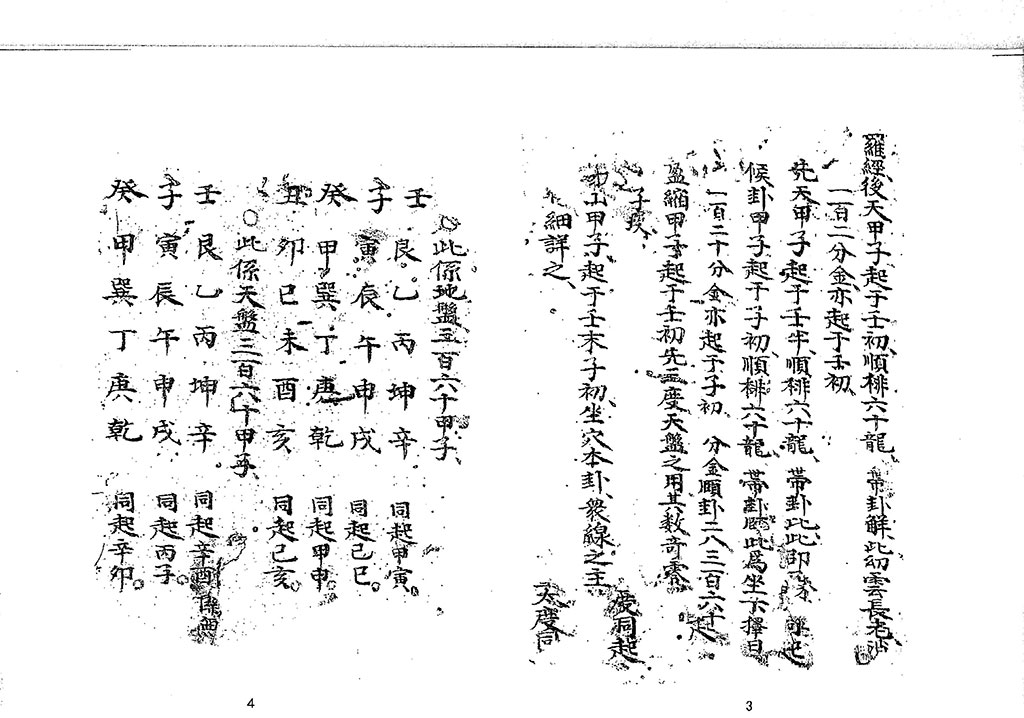 羅經後天甲子起于壬初順排六十龍、帶卦解此幼雲長老
一百二分金亦起于壬初、
先天甲子起于壬半、順排六十龍、帶卦此
候卦甲子起于子初、順排六十龍、帶卦此為坐下擇日
一百二十分金亦起于子初、分金順卦二八三百六十
盈縮甲子起于壬初先五度天盤之用其數奇零
子後、
山甲子起于壬末子初坐穴本卦、衆線之主、度同起
細詳之、。太度同
3
○此係地盤三百六十甲子、
壬艮乙丙坤辛 同起甲寅。
子寅辰午申戌 同起己巳。
癸甲巽丁庚乾 同起甲申。
丑卯巳未酉亥 同起己亥。
○此係天盤三百六十甲子、
壬艮乙丙坤辛 同起辛酉
子寅辰午申戌 同起丙子。
癸甲巽丁庚乾 同起辛卯。
4